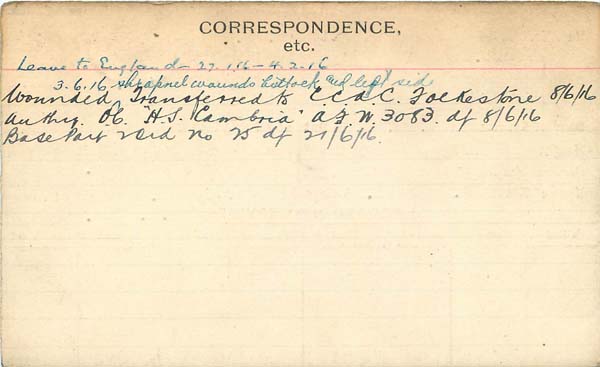 CORRESPONDENCE,
etc.
Leave to England - 27.1.16 - 4.2.16
3.6.16 shrapnel wounds buttock and left side
Wounded, Transferred to E.C.d.C. Folkestone 8/6/16
Authy. O.C. "H.S. Cambria" A.F.W. 3083. df 8/6/16
Base Part 2 Ord No 25 df 21/6/16.